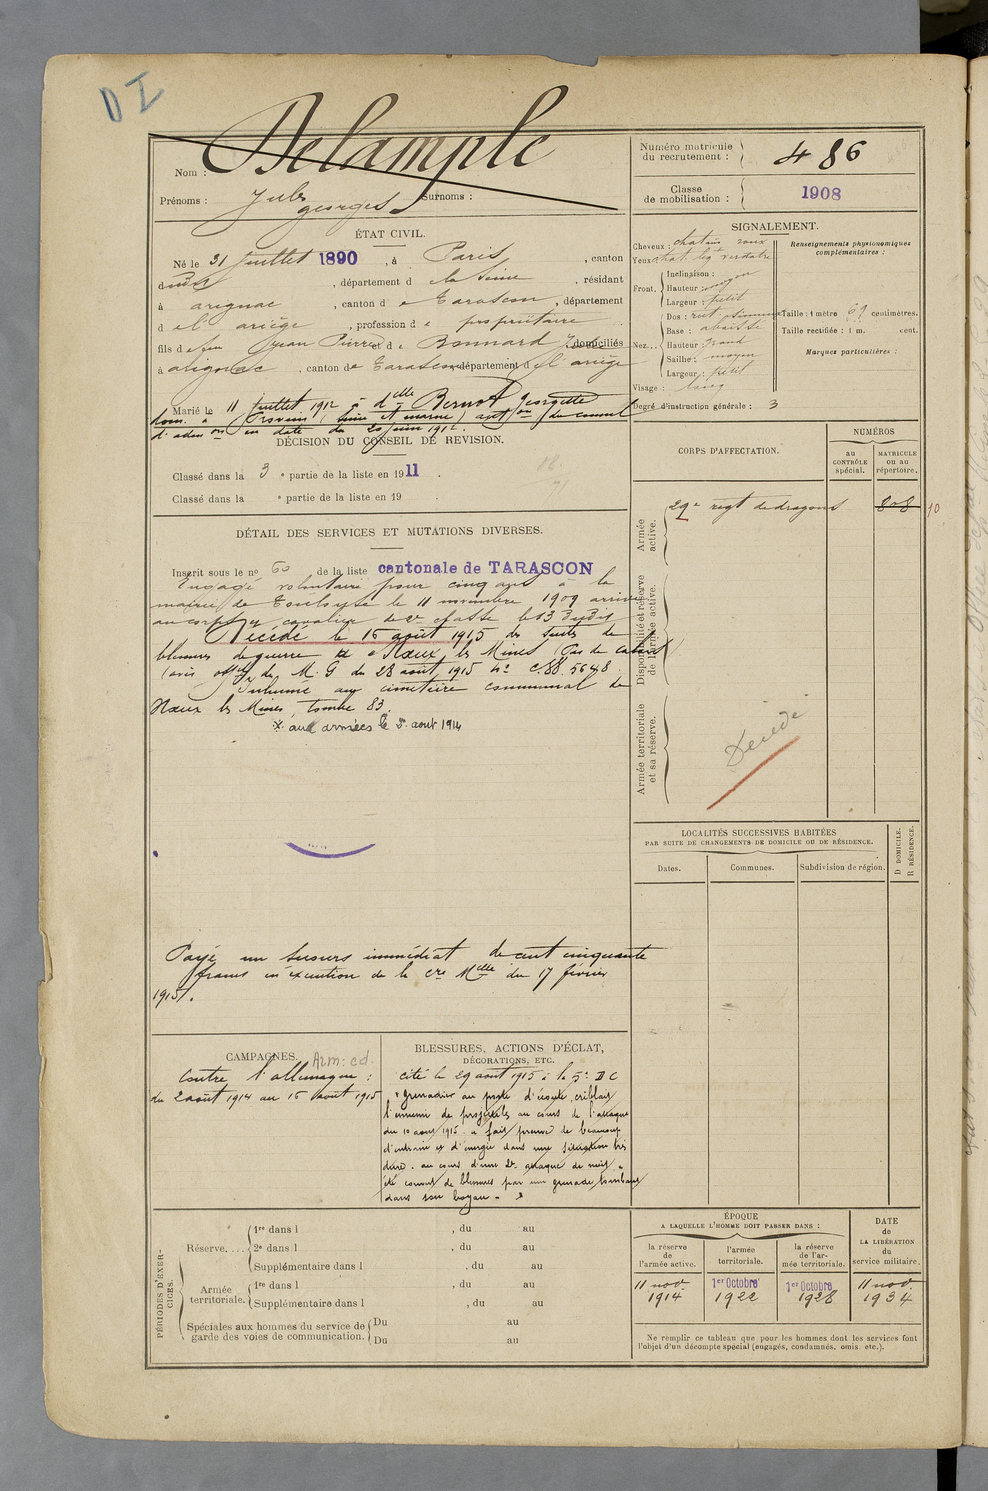 DI
Nom : Delample
Prénoms : Jules Georges Surnoms :
Numéro matricule du recrutement : 486
Classe de mobilisation : 1908
ÉTAT CIVIL.
Né le 31 juillet 1890, à Paris, canton
dudit, département de la Seine, résidant
à Arignac, canton de Tarascon, département
de l'ariège, profession de propriétaire
fils de feu Jean Pierre et de Bonnard domiciliés
à arignac, canton de Tarascon département de l'ariège
Marié le 11 juillet 1912 à delle Bernot Georgette
dom. à Provins (Seine et Marne) auton du conseil
d'adon en date du 20 juin 1912.
SIGNALEMENT.
Cheveux : chatain roux
Yeux chat. verdatre
Front. Inclinaison :
Hauteur : moyen
Largeur : petit
Nez... Dos : rect.
Base : abaissé
Hauteur : grand
Saillie : moyen
Largeur : petit
Visage : long
Degré d'instruction générale : 3
Renseignements physionomiques complémentaires :
Taille : 1 mètre 69 centimètres.
Taille rectifiée : 1 m. cent.
Marques particulières :
DÉCISION DU CONSEIL DE REVISION.
Classé dans la 3e partie de la liste en 1911.
Classé dans la e partie de la liste en 19 .
DÉTAIL DES SERVICES ET MUTATIONS DIVERSES.
Inscrit sous le no 60 de la liste cantonale de TARASCON
Engagé volontaire pour cinq ans à la
mairie de Toulouse le 11 novembre 1909 arrivé
au corps et cavalier de 2e classe le 13 dudit
Décédé le 16 août 1915 des suites de
blessures de guerre x à Nœux les Mines (Pas de Calais)
(avis du M. G du 28 août 1915 No C.SS. 5648.
Inhumé au cimetière communal de
Nœux les Mines, tombe 83.
x. aux armées le 5 août 1914
Payé un secours immédiat de cent cinquante
francs en exécution de la cre Melle du 17 février
1915.
CORPS D'AFFECTATION.
NUMÉROS
au CONTRÔLE spécial.
MATRICULE ou au répertoire.
Armée active.
29e régt de dragons
808
10
Disponibilité et réserve de l'armée active.
Armée territoriale et sa réserve.
Décédé
LOCALITÉS SUCCESSIVES HABITÉES
PAR SUITE DE CHANGEMENTS DE DOMICILE OU DE RÉSIDENCE.
Dates.
Communes.
Subdivision de région.
D DOMICILE.
R RÉSIDENCE.
CAMPAGNES.
Arm: cd.
Contre l'allemagne :
du 2 août 1914 au 16 août 1915
BLESSURES, ACTIONS D'ÉCLAT,
DÉCORATIONS, ETC.
Cité le 29 août 1915 à la 5e D C
"grenadier au poste d'écoute criblait
l'ennemi de projectiles au cours de l'attaque
du 10 aout 1915. a fait preuve de beaucoup
d'entrain et d'énergie dans une situation très
dure. au cours d'une 2e attaque de nuit a
été couvert de blessures par une grenade tombant
dans son boyau."
PÉRIODES D'EXERCICES.
Réserve.... 1re dans l , du au
2e dans l , du au
Supplémentaire dans l , du au
Armée territoriale. 1re dans l , du au
Supplémentaire dans l , du au
Spéciales aux hommes du service de garde des voies de communication. Du au
Du au
ÉPOQUE
A LAQUELLE L'HOMME DOIT PASSER DANS :
la réserve de l'armée active.
l'armée territoriale.
la réserve de l'armée territoriale.
DATE de LA LIBÉRATION du service militaire.
11 nov. 1914
1er Octobre 1922
1er Octobre 1928
11 nov. 1934
Ne remplir ce tableau que pour les hommes dont les services font
l'objet d'un décompte spécial (engagés, condamnés, omis, etc.).